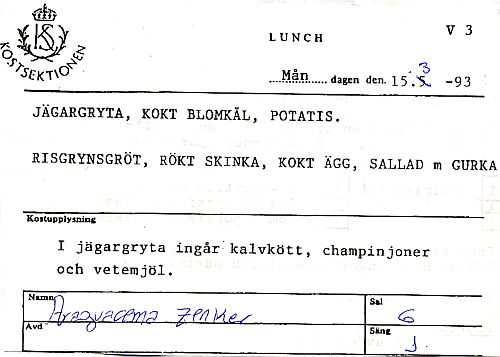 V 3
LUNCH
KS
KOSTSEKTIONEN
Mån dagen den. 15.3 -93
JÄGARGRYTA, KOKT BLOMKÅL, POTATIS.
RISGRYNSGRÖT, RÖKT SKINKA, KOKT ÄGG, SALLAD m GURKA
Kostupplysning
I jägargryta ingår kalvkött, champinjoner
och vetemjöl.
Namn Zenker
Sal
6
Avd
Säng